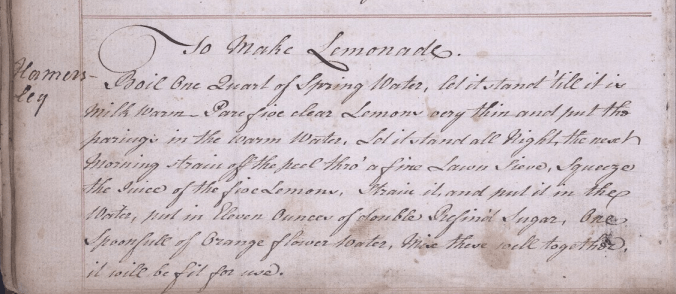 To Make Lemonade.
Hamers-
ley
Boil One Quart of Spring Water, let it stand 'till it is
Milk Warm – Pare five clear Lemons very thin and put the
parings in the warm Water, Let it stand all Night, the next
Morning strain off the peel thro' a fine Lawn Sieve, Squeeze
the Juice of the five Lemons, Strain it and put it in the
Water, put in Eleven Ounces of double Refin'd Sugar, One
Spoonfull of Orange flower Water, Mix these well together,
it will be fit for use.